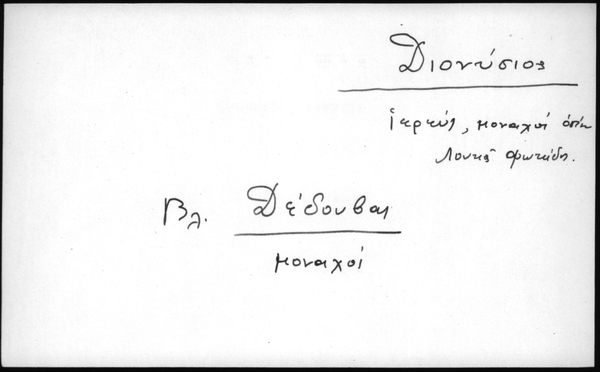 Διονύσιος
ἱερεύς, μοναχοί ὁσίου
Λουκᾶ Φωκίδος.
Βλ. Δέδουβαι
μοναχοί